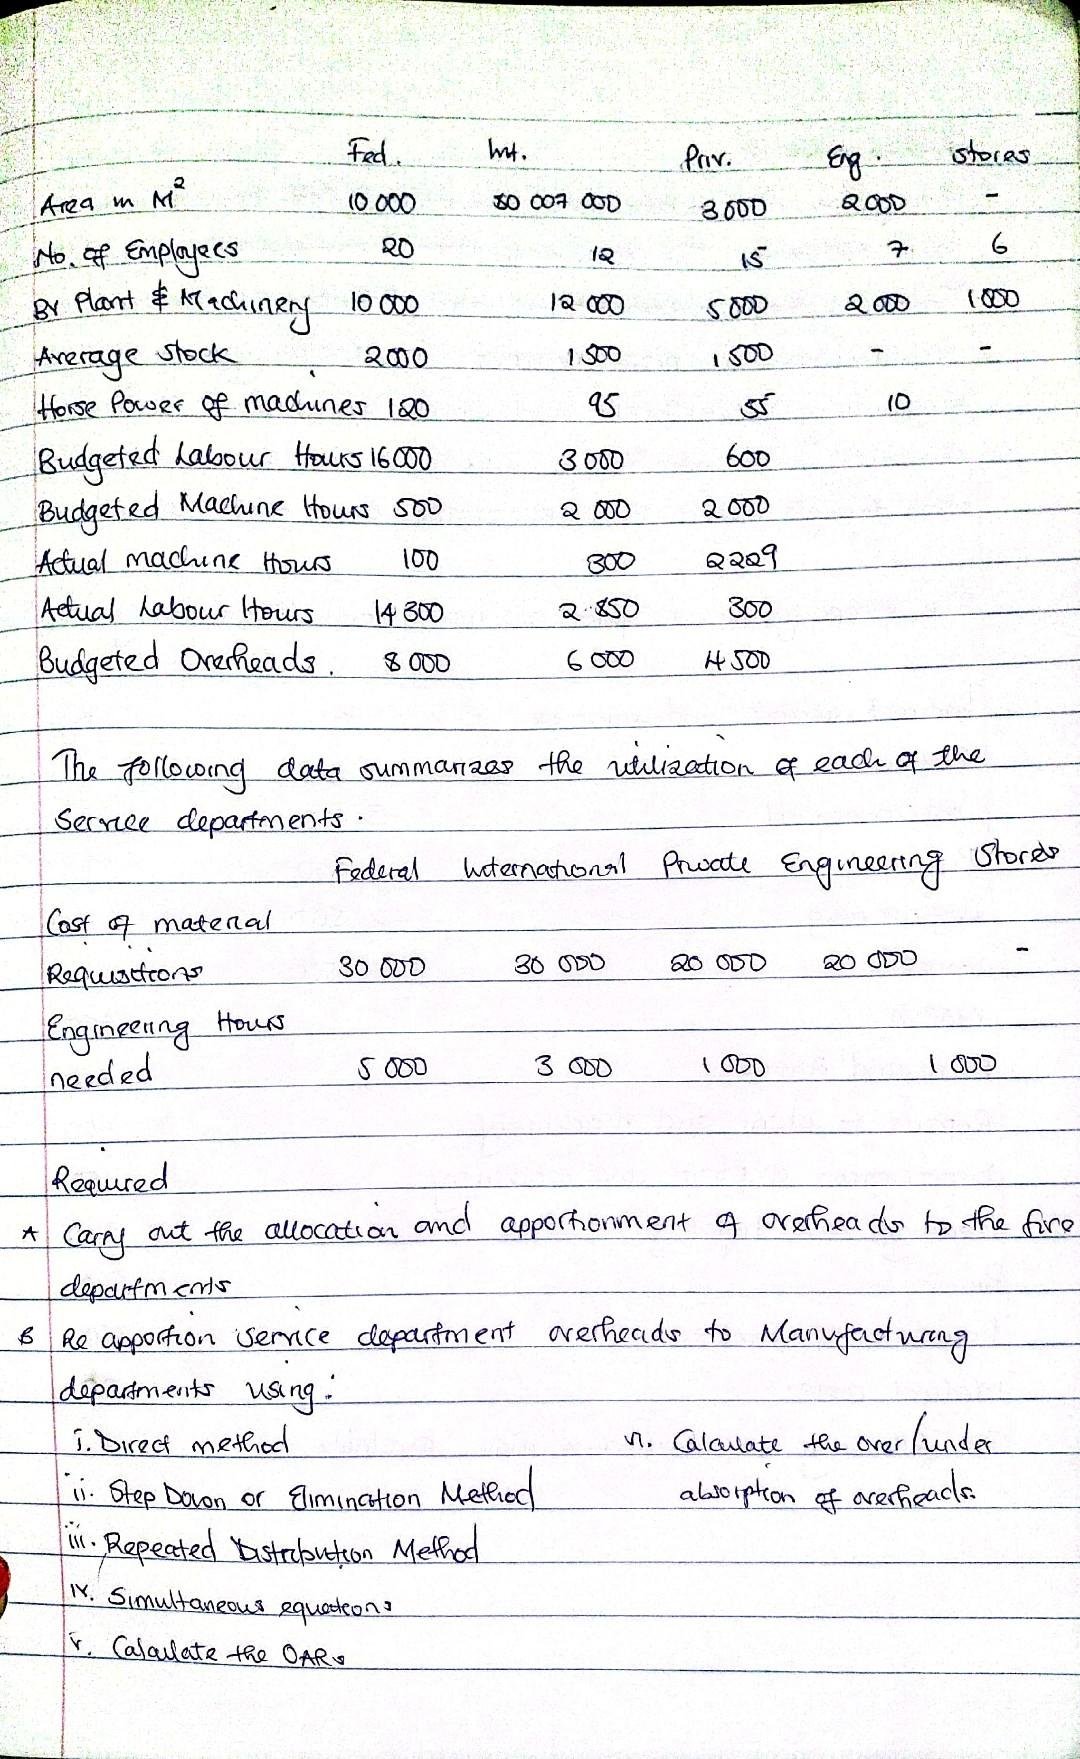 Fed. Int. Priv. Eng. Stores
Area in M² 10 000 007 000 3 000 2 000 -
No. of Employees 20 12 15 7 6
BV Plant & Machinery 10 000 12 000 5 000 2 000 1 000
Average Stock 2000 1 500 1 500 - -
Horse Power of machines 120 95 55 10
Budgeted Labour Hours 16 000 3 000 600
Budgeted Machine Hours 500 2 000 2 000
Actual machine Hours 100 300 2229
Actual Labour Hours 14 300 2 850 300
Budgeted Overheads. 8 000 6 000 4 500
The following data summarizes the utilization of each of the
Service departments.
Federal International Private Engineering Stores
Cost of material
Requisitions 30 000 30 000 20 000 20 000 -
Engineering Hours
needed 5 000 3 000 1 000 1 000
Required
A Carry out the allocation and apportionment of overheads to the five
departments
B Re apportion service department overheads to Manufacturing
departments using:
i. Direct method
ii. Step Down or Elimination Method
iii. Repeated Distribution Method
iv. Simultaneous equations
v. Calculate the OARs
vi. Calculate the over/under
absorption of overheads.